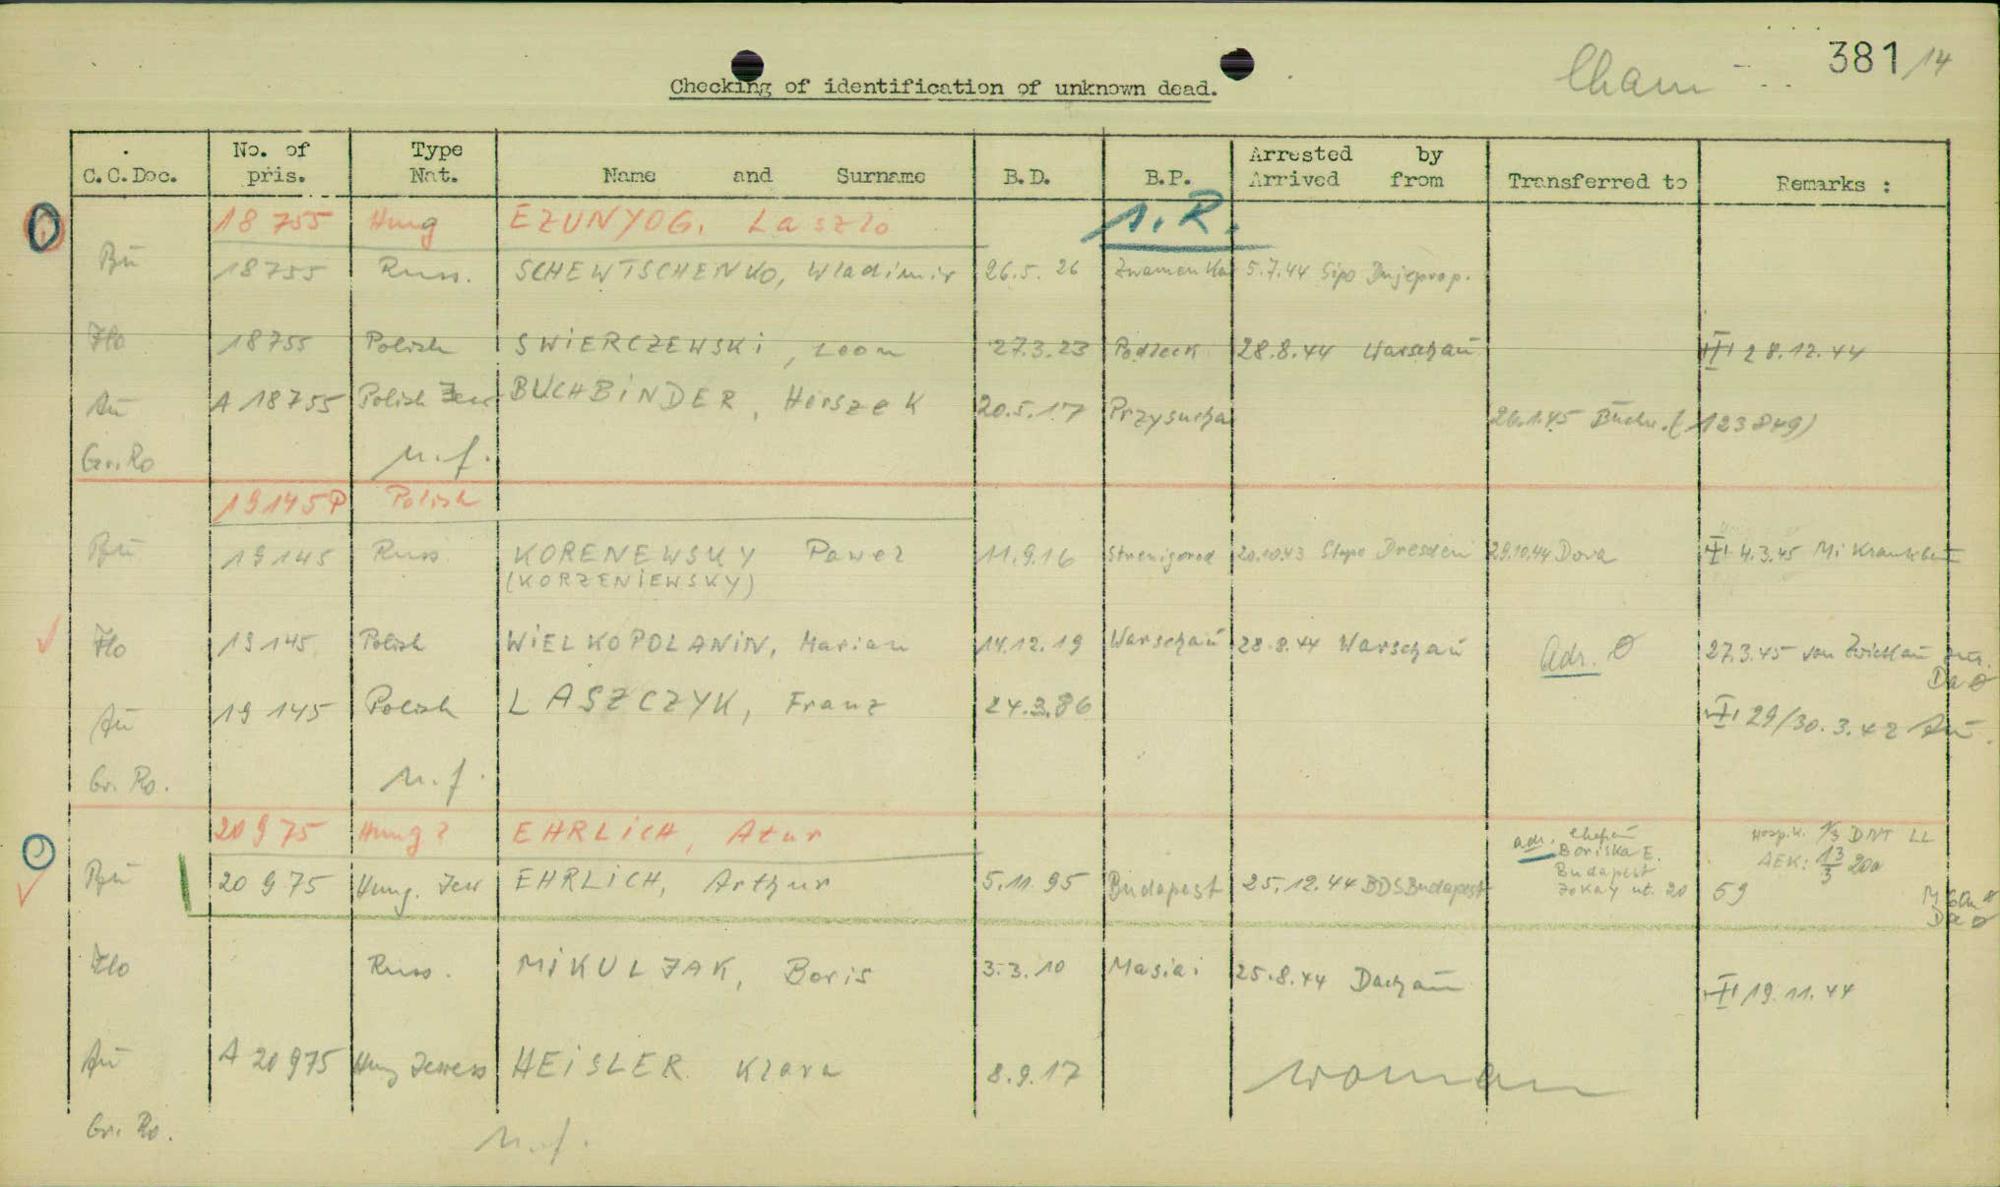 Cham 381/14
Checking of identification of unknown dead.
C.C.Doc. No. of pris. Type Nat. Name and Surname B.D. B.P. Arrested by Arrived from Transferred to Remarks :
18755 Hung EZUNYOG, Laszlo 1.R.
Bu 18755 Russ. SCHEWTSCHENKO, Wladimir 26.5.26 5.7.44 Sipo Dnjeprop.
Flo 18755 Polish SWIERCZEWSKI, Leon 27.3.23 28.8.44 Warschau 28.12.44
Au A 18755 Polish Jew BUCHBINDER, Herszek 20.5.17 Przysucha 26.1.45 Buchw. (123849)
Gr.Ro n.f.
19145P Polish
Bu 19145 Russ. KORENEWSKY Pawel 11.9.16 20.10.43 Stapo Dresden 29.10.44 Dora 4.3.45
(KORZENIEWSKY)
Flo 19145 Polish WIELKOPOLANIN, Marian 14.12.19 Warschau 28.8.44 Warschau Adr. Ø 27.3.45 von Zwickau
Da Ø
Au 19145 Polish LASZCZYK, Franz 24.3.86 29/30.3.42 Au.
Gr. Ro. n.f.
20975 Hung? EHRLICH, Atur
adr. Ehefrau
Boriska E.
Budapest
Jokay ut. 20
AEK: 13/3
Bu 20975 Hung. Jew EHRLICH, Arthur 5.11.95 Budapest 25.12.44 BDS Budapest 59
Da Ø
Flo Russ. MIKULJAK, Boris 3.3.10 Masiai 25.8.44 Dachau 19.11.44
Au A 20975 Hung Jewess HEISLER Klara 8.9.17 woman
Gr. Ro. n.f.